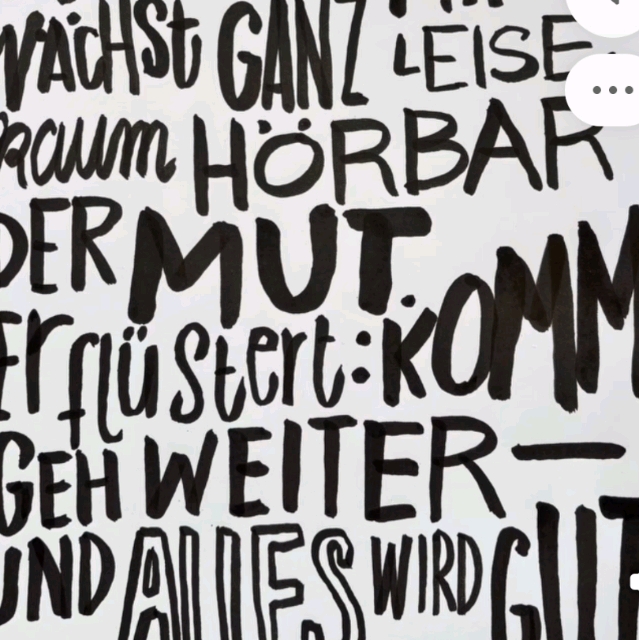 WÄCHST GANZ LEISE,
kaum HÖRBAR
DER MUT.
Er flüstert: KOMM
GEH WEITER —
UND ALLES WIRD GUT